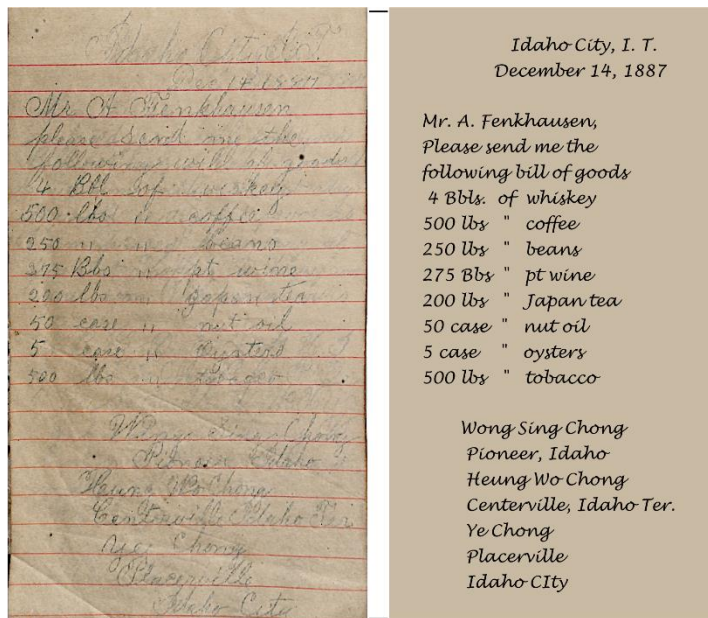 Idaho City I.T.
Dec 14 1887
Mr A Fenkhausen
please send me the
following bill of goods
4 Bbl of whiskey
500 lbs " coffee
250 " " beans
275 Bbs " pt wine
200 lbs " Japan tea
50 case " nut oil
5 case " Oysters
500 lbs " tobacco
Wong Sing Chong
Pioneer Idaho
Heung Wo Chong
Centerville Idaho Ter
Yee Chong
Placerville
Idaho City
Idaho City, I. T.
December 14, 1887
Mr. A. Fenkhausen,
Please send me the
following bill of goods
4 Bbls. of whiskey
500 lbs " coffee
250 lbs " beans
275 Bbs " pt wine
200 lbs " Japan tea
50 case " nut oil
5 case " oysters
500 lbs " tobacco
Wong Sing Chong
Pioneer, Idaho
Heung Wo Chong
Centerville, Idaho Ter.
Ye Chong
Placerville
Idaho CIty